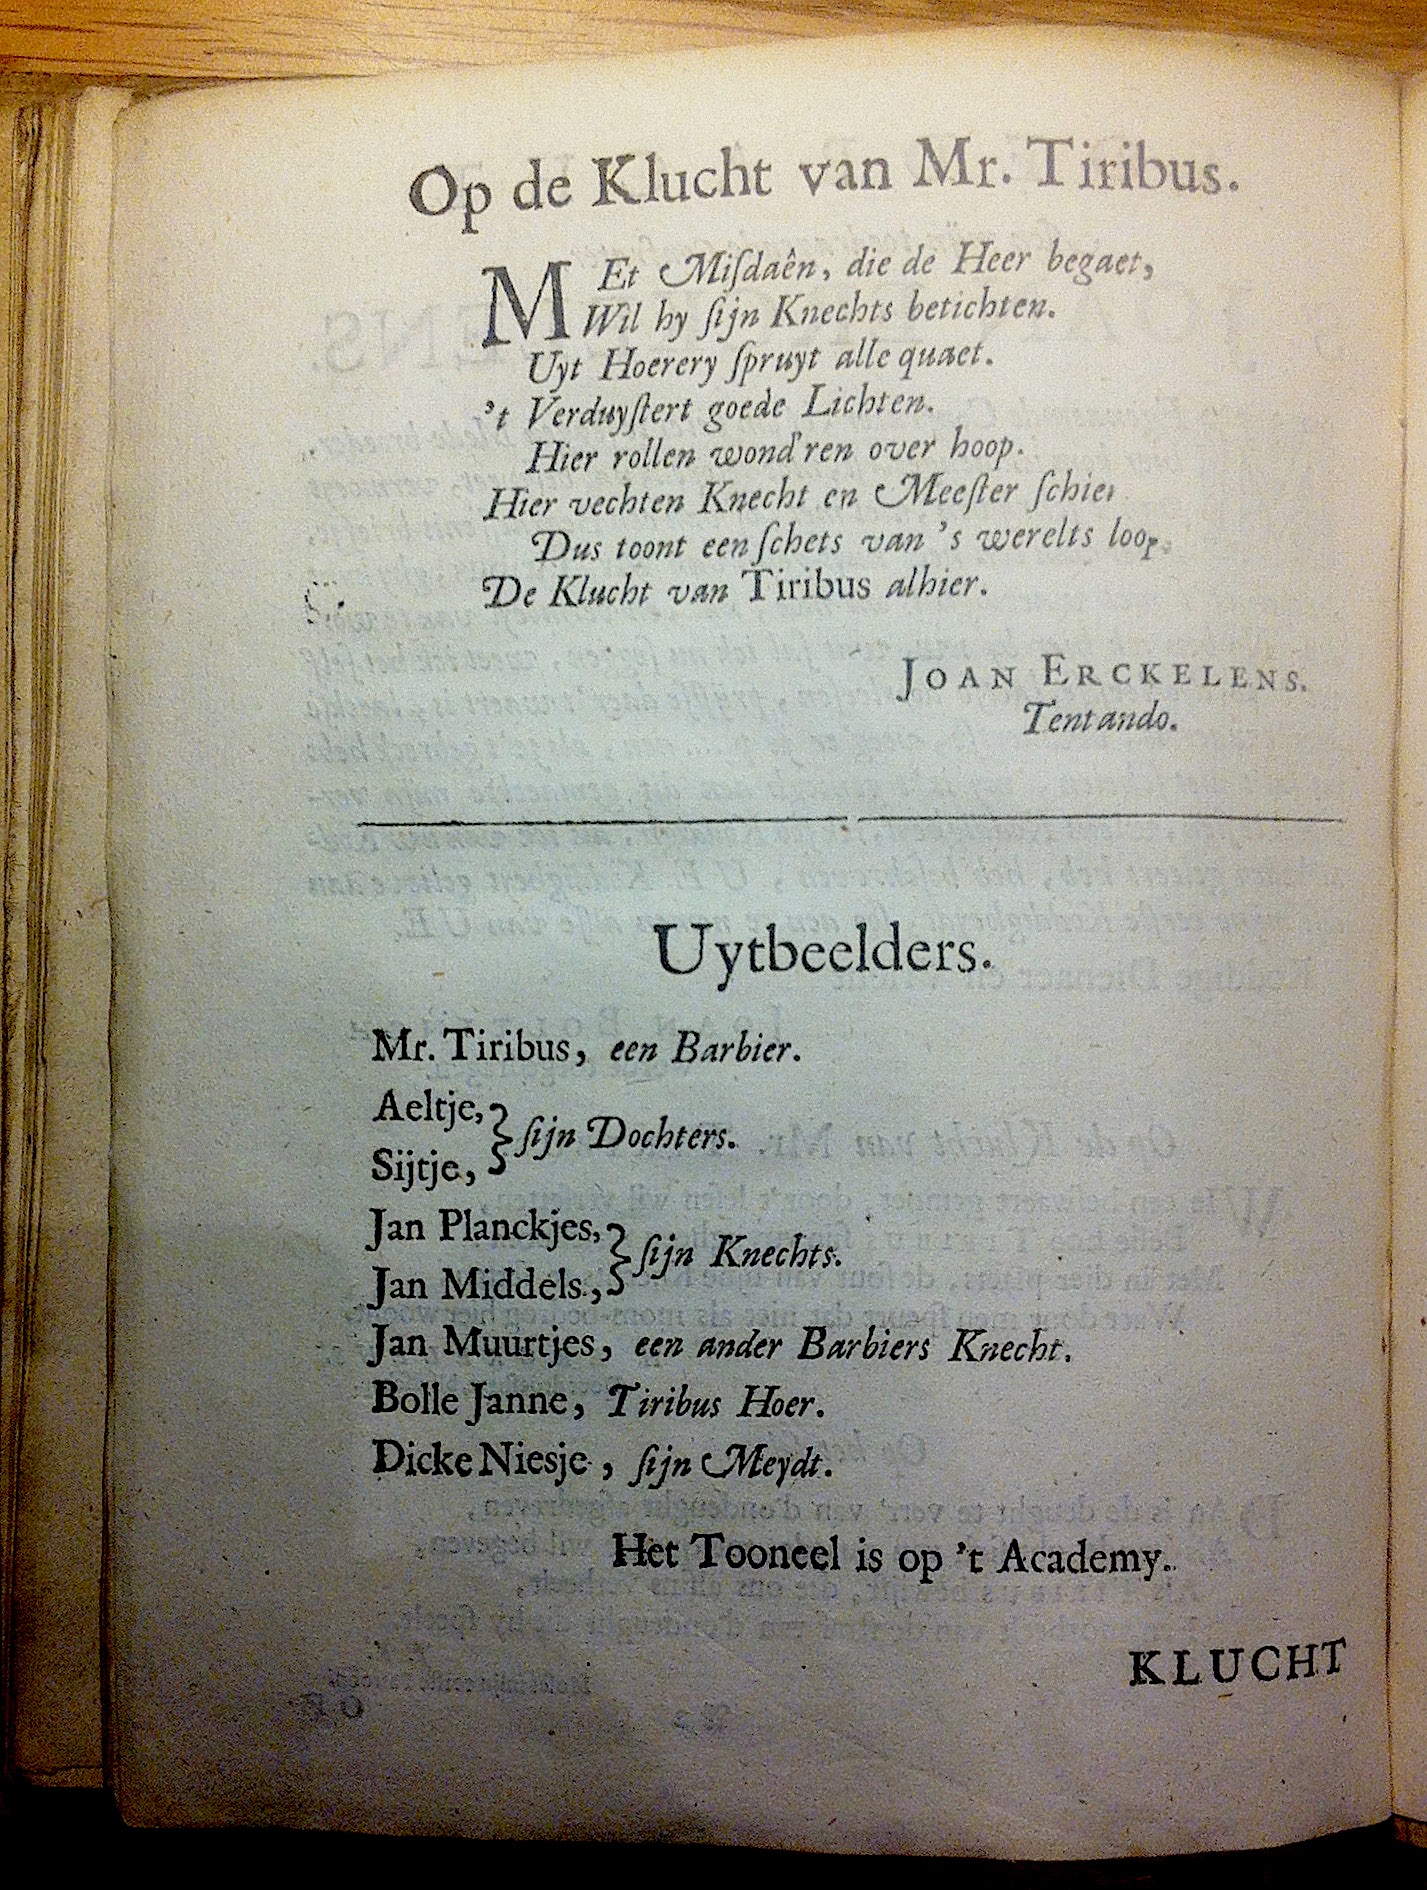 Op de Klucht van Mr. Tiribus.
MEt Miſdaên, die de Heer begaet,
Wil hy ſijn Knechts betichten.
Uyt Hoerery ſpruyt alle quaet.
't Verduyſtert goede Lichten.
Hier rollen wond'ren over hoop.
Hier vechten Knecht en Meeſter ſchier
Dus toont een ſchets van 's werelts loop,
De Klucht van Tiribus alhier.
JOAN ERCKELENS.
Tentando.
Uytbeelders.
Mr. Tiribus, een Barbier.
Aeltje,
Sijtje, } ſijn Dochters.
Jan Planckjes,
Jan Middels, } ſijn Knechts.
Jan Muurtjes, een ander Barbiers Knecht.
Bolle Janne, Tiribus Hoer.
Dicke Niesje, ſijn Meydt.
Het Tooneel is op 't Academy.
KLUCHT